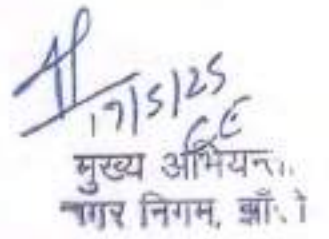 17/5/25
CE
मुख्य अभियन्ता
नगर निगम, झाँसी